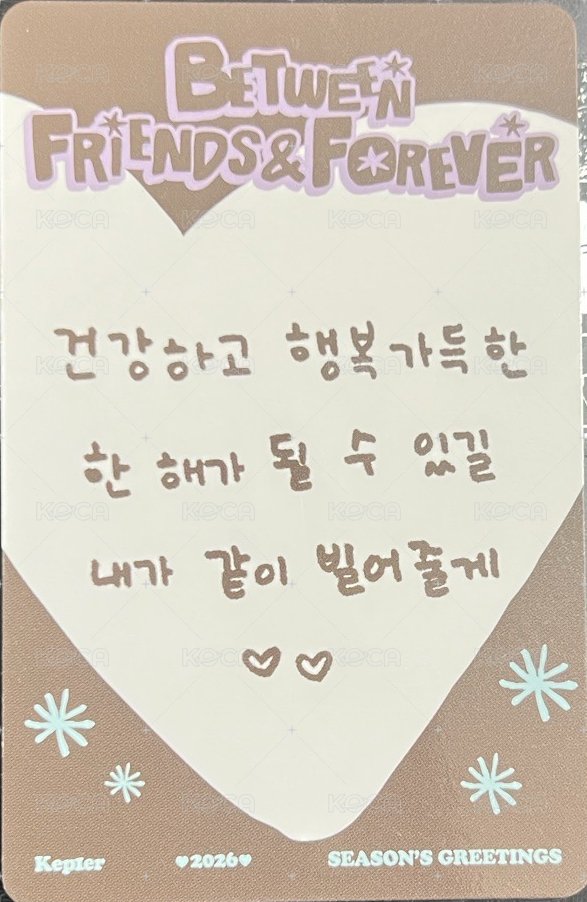 BETWEEN
FRIENDS & FOREVER
건강하고 행복가득한
한 해가 될 수 있길
내가 같이 빌어줄게
♡♡
Kep1er ♥2026♥ SEASON'S GREETINGS
KOCA